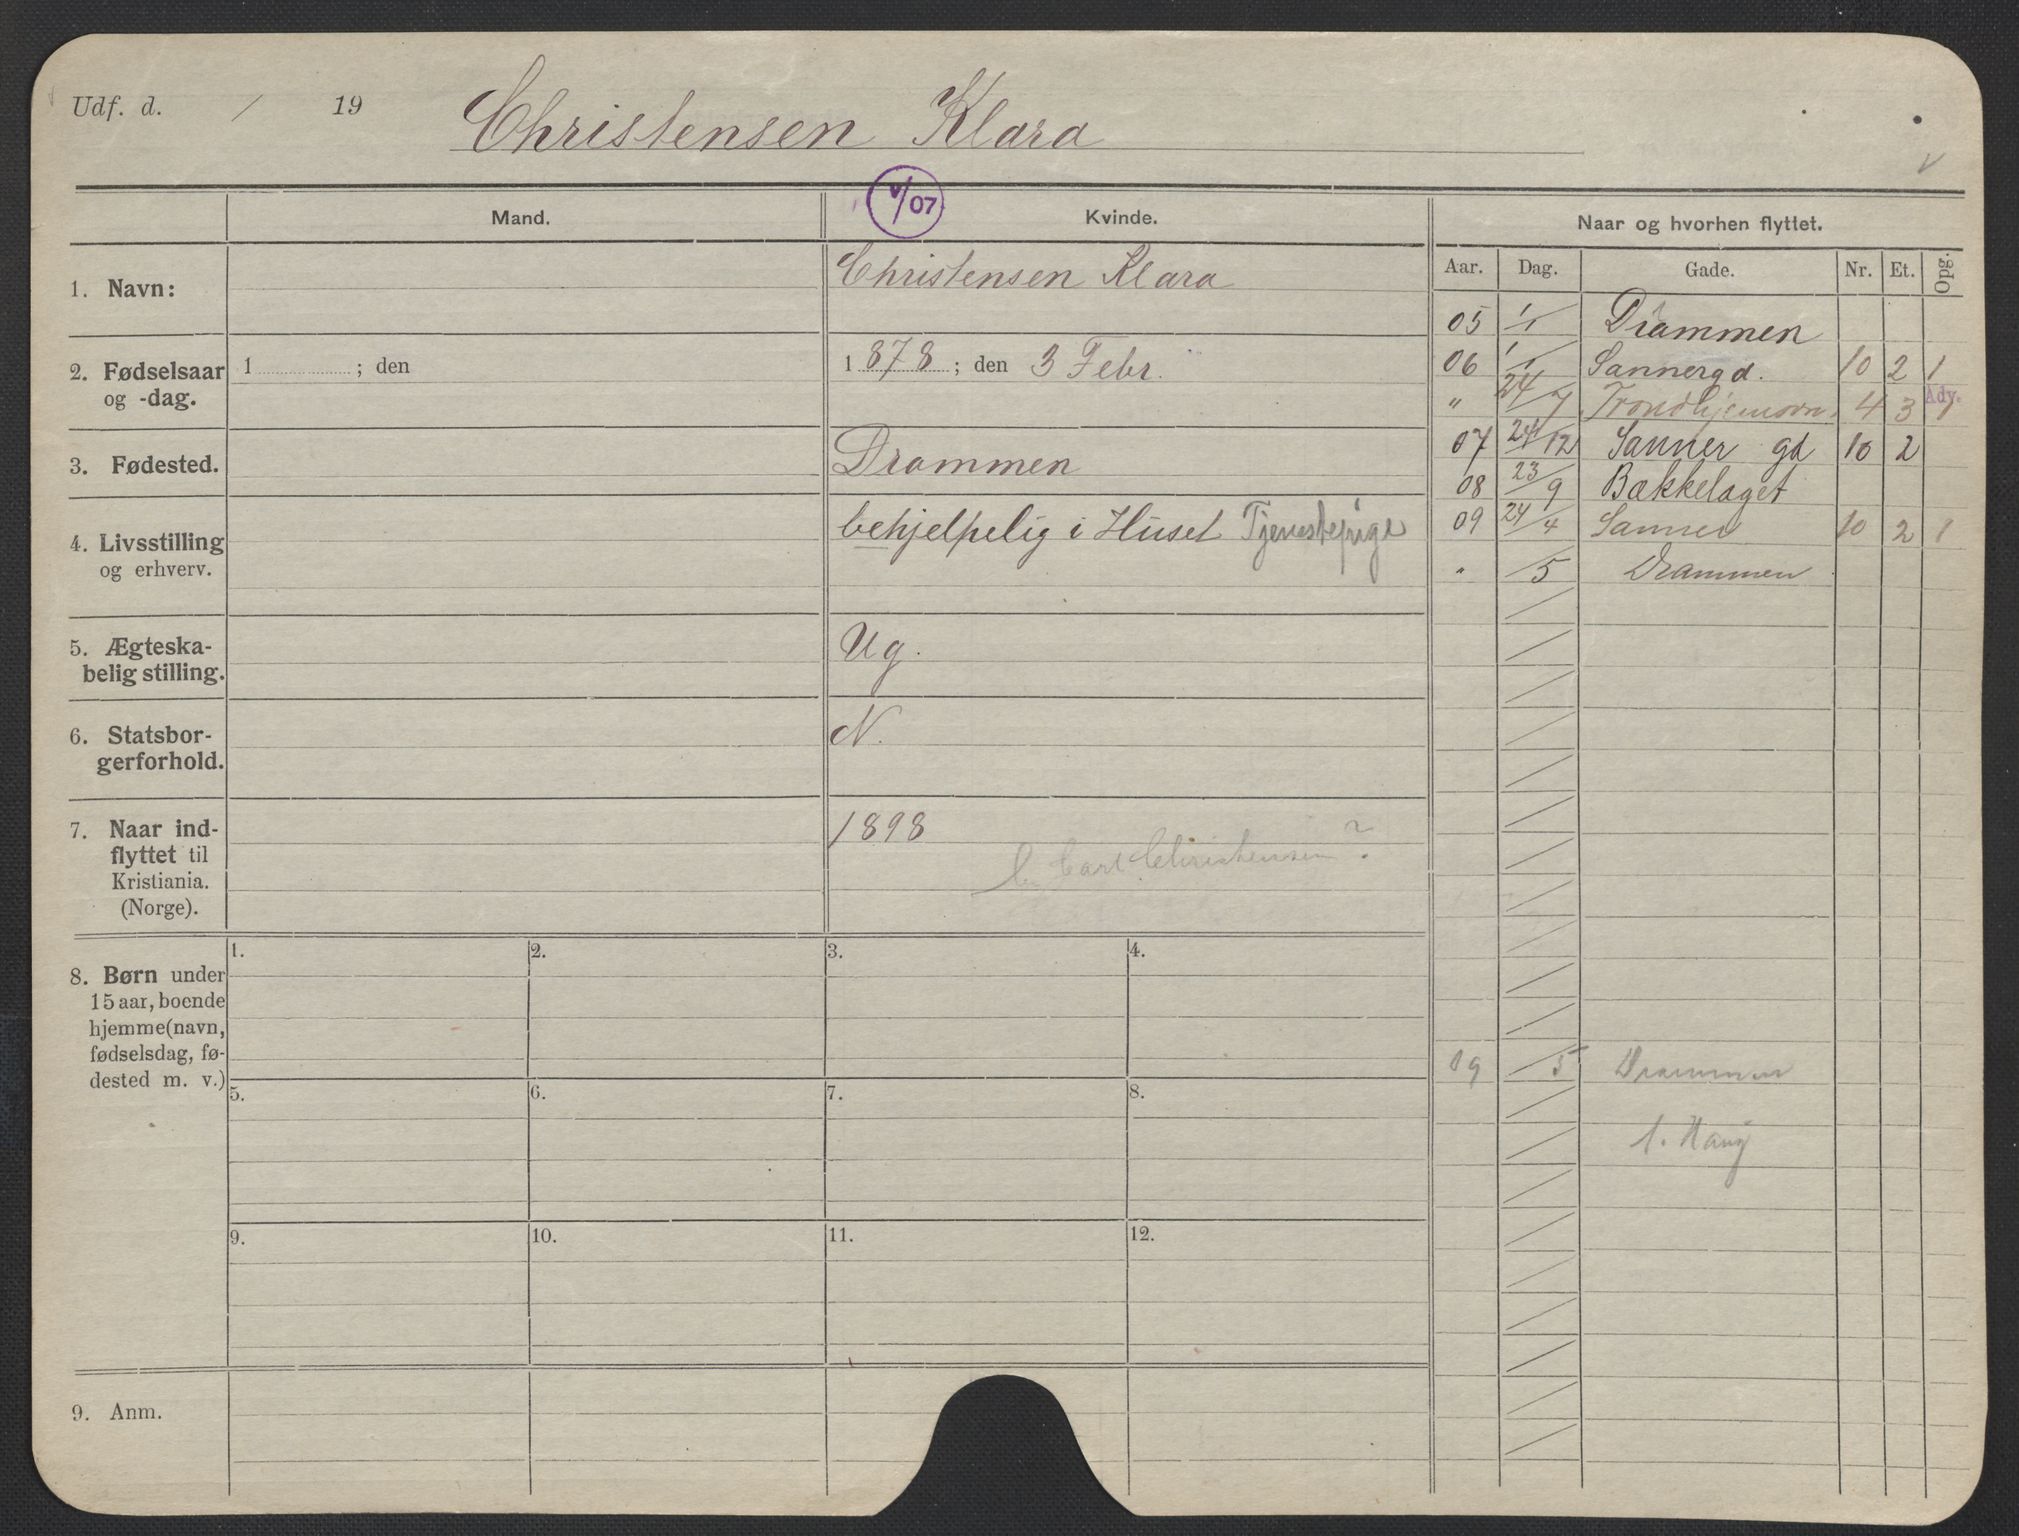 Udf. d. / 19
Christensen Klara
V/07
Mand.
Kvinde.
Naar og hvorhen flyttet.
Aar. Dag. Gade. Nr. Et. Opg.
1. Navn:
Christensen Klara
2. Fødselsaar
og -dag.
1 ; den
1878 ; den 3 Febr.
3. Fødested.
Drammen
4. Livsstilling
og erhverv.
behjelpelig i Huset Tjenestepige
5. Ægteska-
belig stilling.
Ug.
6. Statsbor-
gerforhold.
N.
7. Naar ind-
flyttet til
Kristiania.
(Norge).
1898
Carl Christensen?
8. Børn under
15 aar, boende
hjemme (navn,
fødselsdag, fø-
dested m. v.)
1. 2. 3. 4.
5. 6. 7. 8.
9. 10. 11. 12.
9. Anm.
05 1/1 Drammen
06 1/1 Sannergd. 10 2 1
Adv.
" 24/7 Trondhjemsvn. 4 3 1
07 24/12 Sanner gd 10 2
08 23/9 Bækkelaget
09 24/4 Sanner 10 2 1
" /5 Drammen
09 /5 Drammen